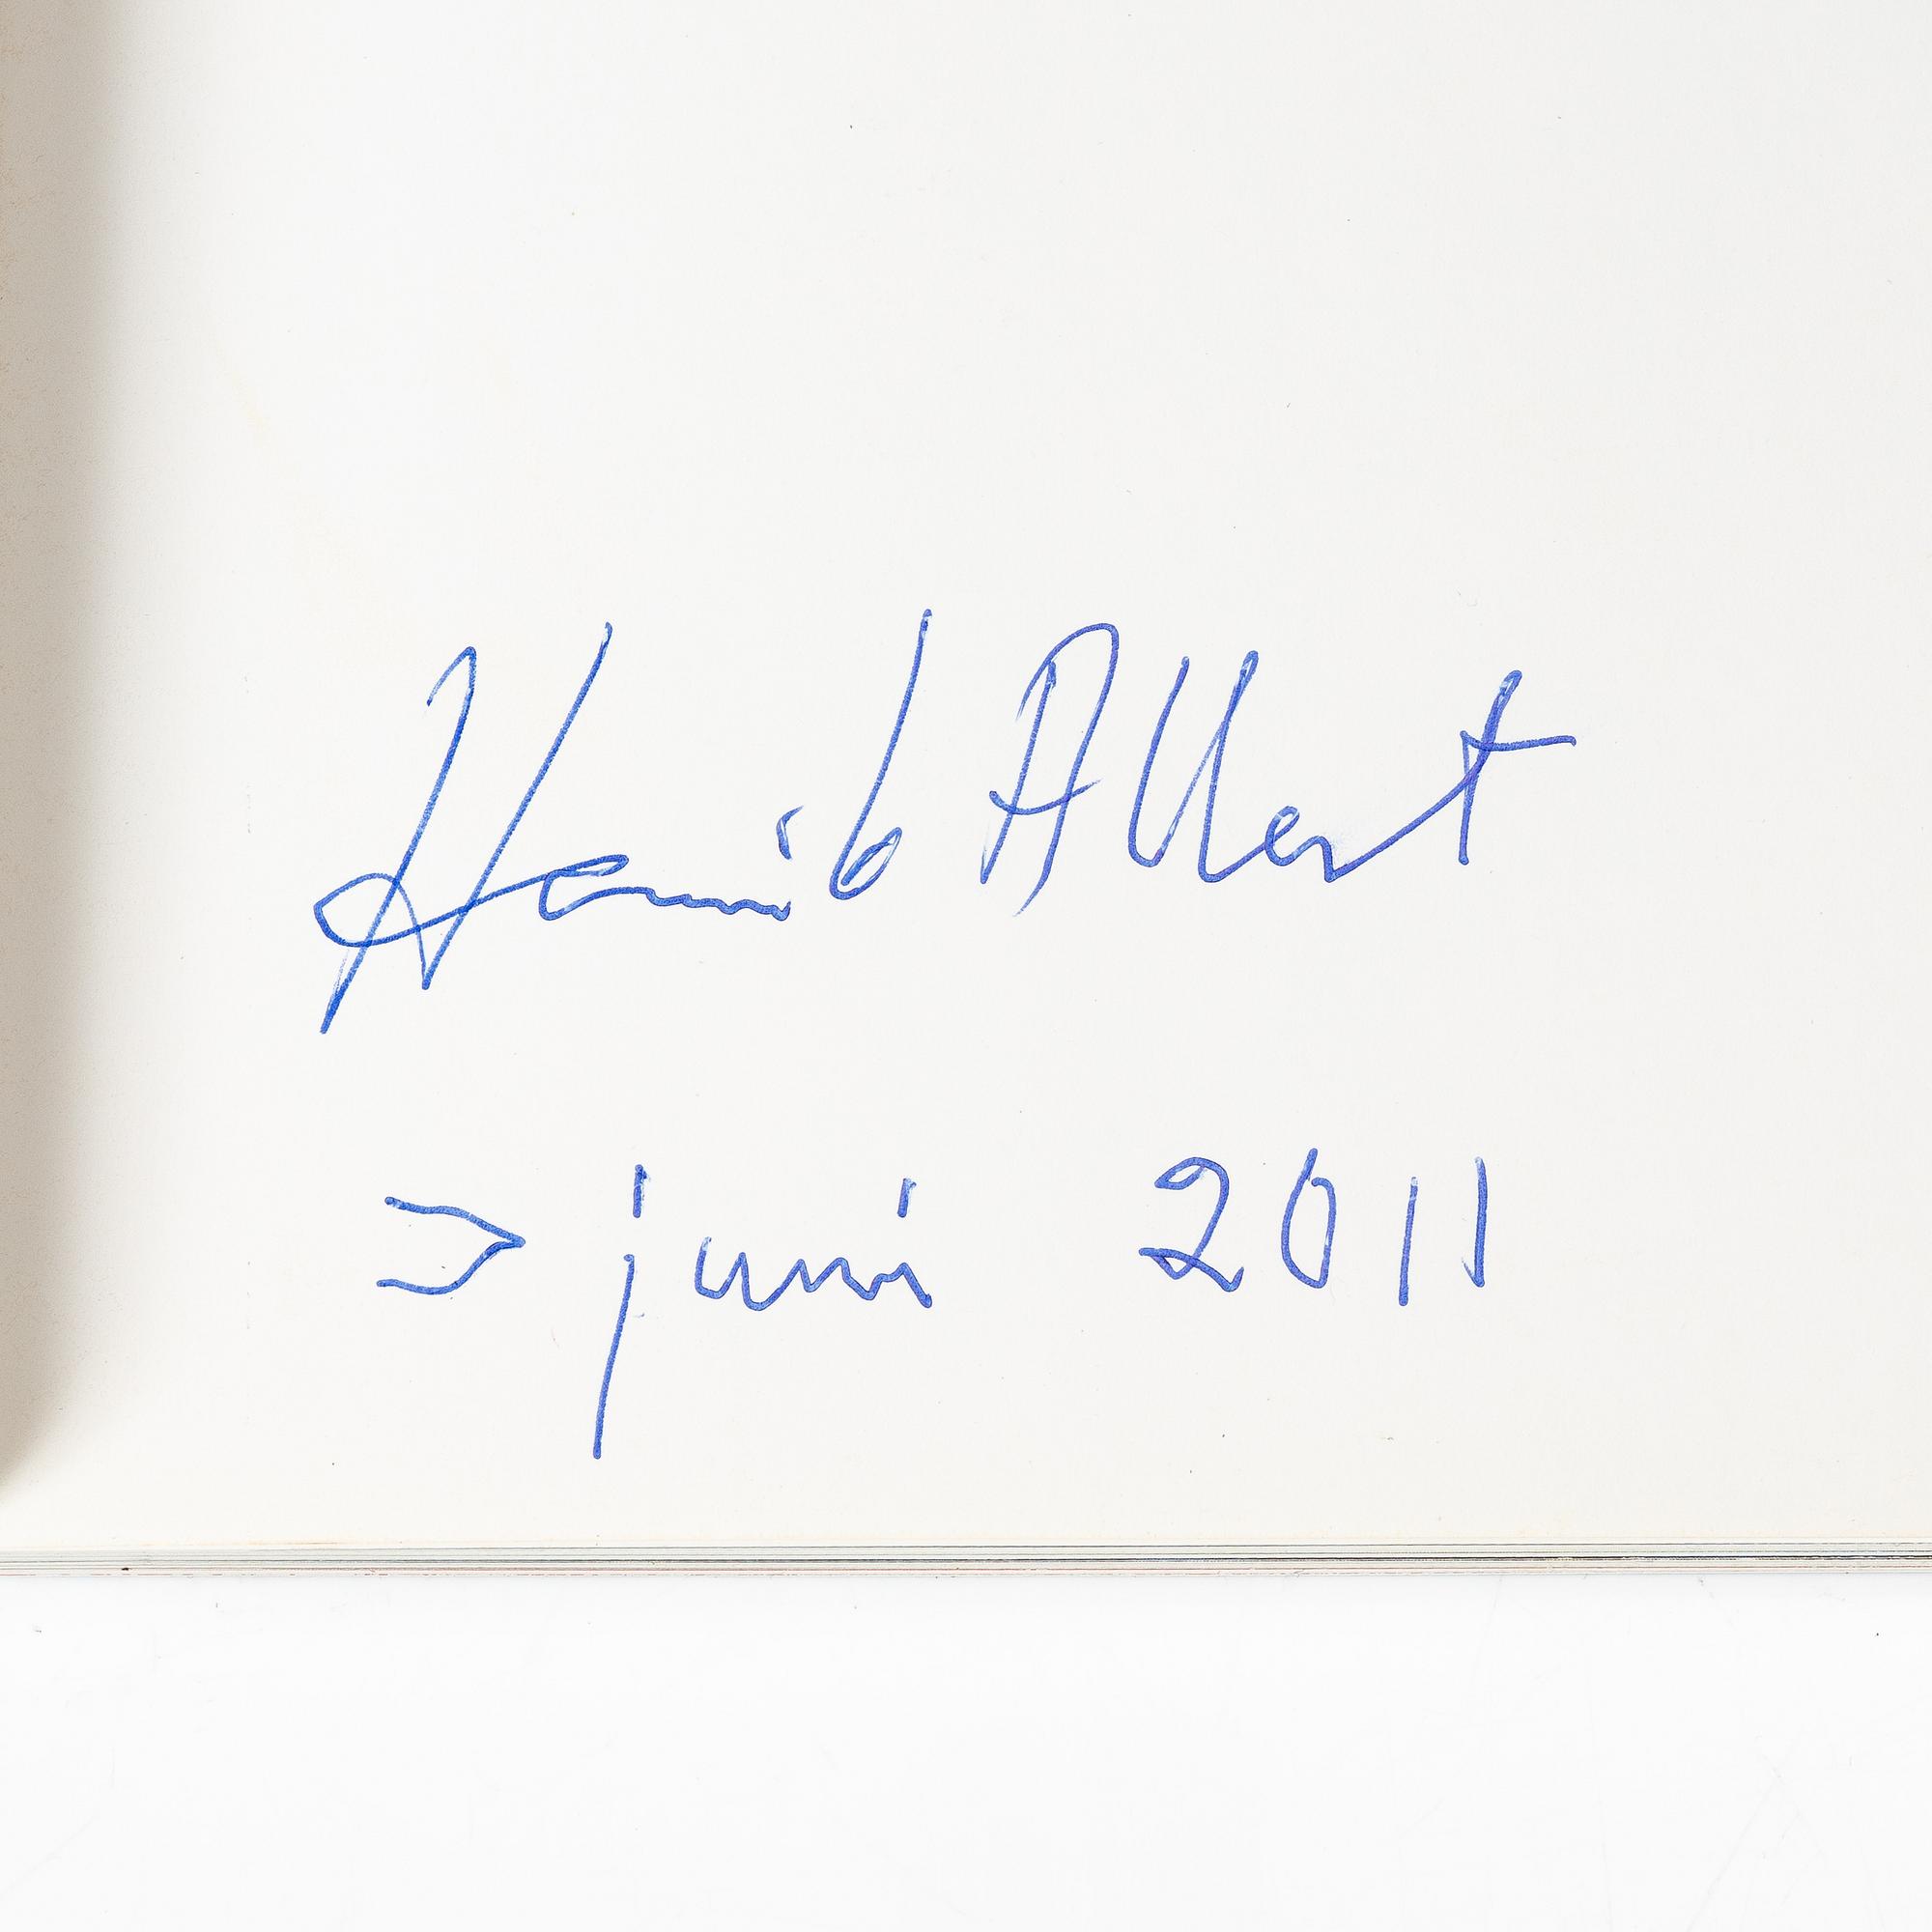 Henrik Allert
juni 2011